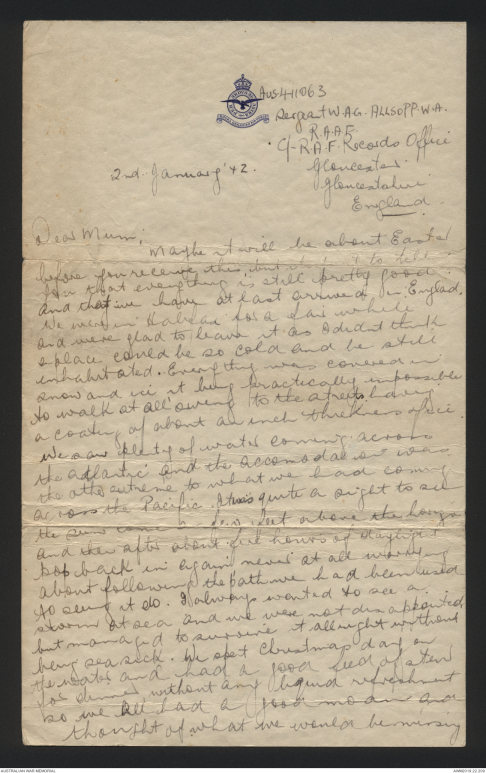 Aus 411063
Sergeant W.A.G. Allsopp. W.A.
R.A.A.F.
C/- R.A.F. Records Office
Gloucester
Gloucestshire
England
2nd January '42.
Dear Mum,
Maybe it will be about Easter
before you receive this, but it is to tell
you that everything is still pretty good
and that we have at last arrived in Englad.
We were in Halifax for a fair while
and were glad to leave it as I didnt think
a place could be so cold and be still
inhabitated. Everything was covered in
snow and ice, it being practically impossible
to walk at all owing to the streets having
a coating of about an inch thickness of ice.
We saw plenty of water coming across
the atlantic and the accomodation was
the other extreme to what we had coming
across the Pacific. It was quite a sight to see
the sun come a few feet above the horizon
and then after about five hours of daylight
pop back in again never at all worrying
about following the path we had been used
to seeing it do. I always wanted to see a
storm at sea and we were not disappointed
but managed to survive it allright without
being sea sick. We spent Christmas day on
the water and had a good feed of stew
for dinner without any liquid refreshment
so we all had a good moan and
thought of what we would be missing
AUSTRALIAN WAR MEMORIAL